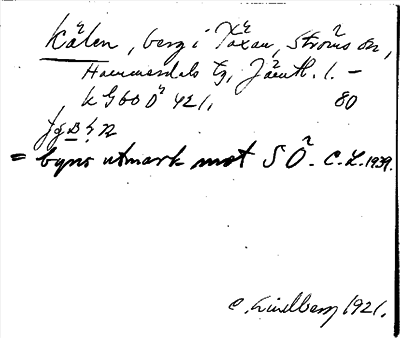 Kälen, berg i Töxan, Ströms sn,
Hammerdals tg, Jämtl. l. —
k G 60 Ö 421, 80
= byns utmark mot SÖ. C. L. 1939.
C. Lindberg 1921.